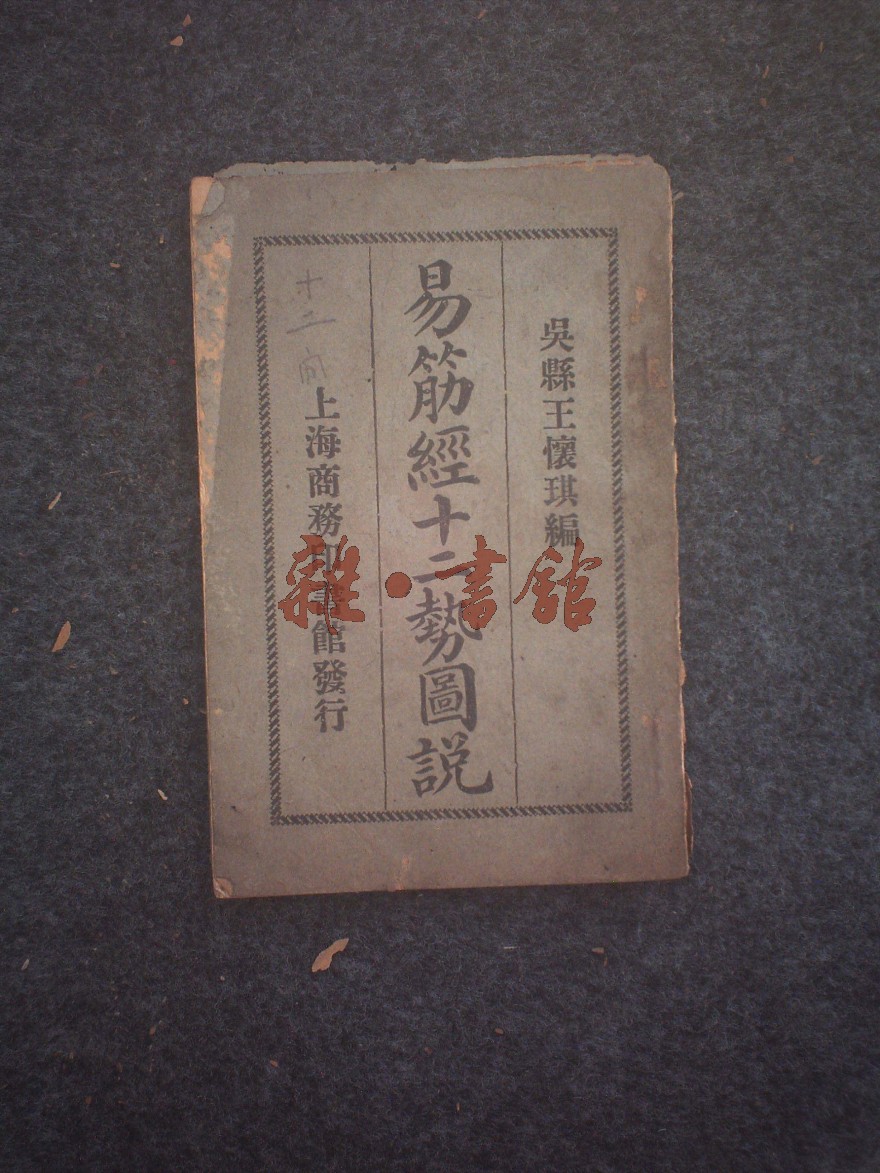 吳縣王懷琪編
易筋經十二勢圖説
上海商務印書館發行
十二
雜·書館